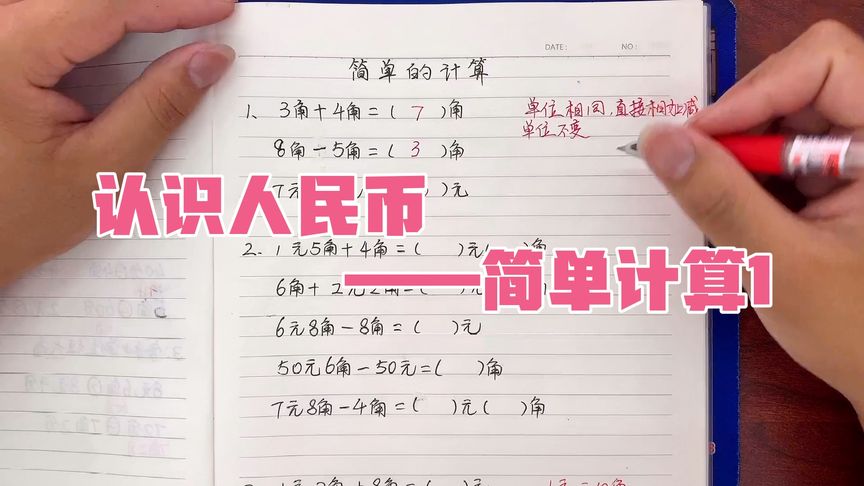 DATE: NO:
简单的计算
1、3角+4角=( 7 )角 单位相同,直接相加减
单位不变
8角-5角=( 3 )角
7元 )元
认识人民币
2、1元5角+4角=( )元( )角
——简单计算1
6角+2元2角=(
6元8角-8角=( )元
50元6角-50元=( )角
7元8角-4角=( )元( )角